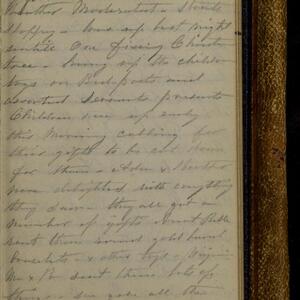 Weather Moderated - Streets
Sloppy - was up last night
until One fixing Christmas
tree - hung up the children
toys on Bed posts and
assorted Servants presents
Children were up early
this Morning calling for
their gifts to be cut down
for them -
were delighted with everything
they saw - they all got a
number of gifts - Aunt
sent them some gold
bracelets - & other toys -
Ma & Pa sent them lots of
things - all the